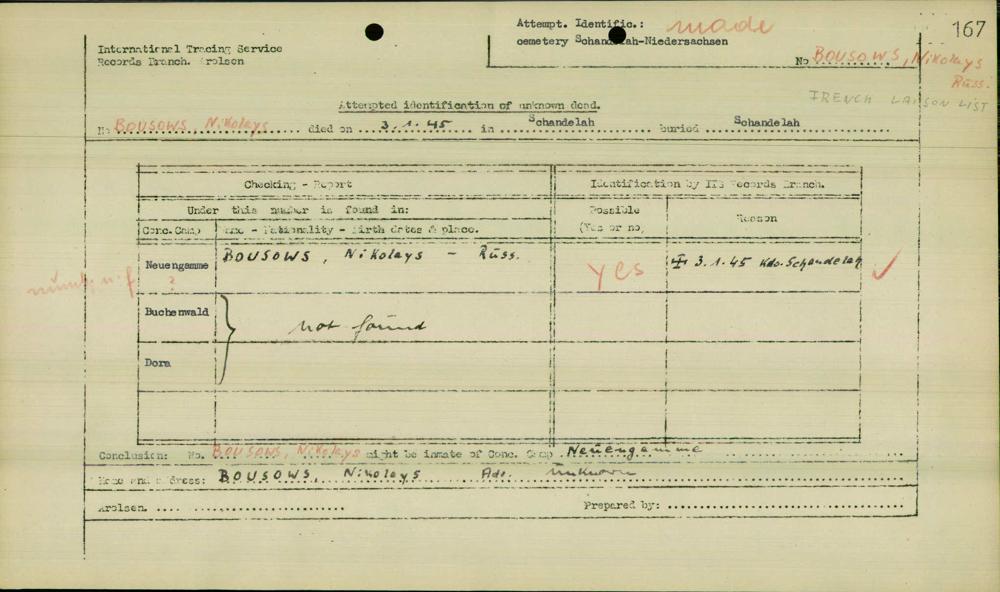 Attempt. Identific.: made
167
International Tracing Service
cemetery Schandelah-Niedersachsen
Records Branch. Arolsen
No BOUSOWS, Nikolays
Russ.
FRENCH LIAISON LIST
Attempted identification of unknown dead.
No BOUSOWS, Nikolays died on 3.1.45 in Schandelah buried Schandelah
Checking - Report
Identification by ITS Records Branch.
Under this number is found in:
Possible
(Yes or no)
Reason
Conc. Camp
Name - Nationality - Birth dates & place.
Neuengamme
BOUSOWS, Nikolays - Russ.
yes
3.1.45 Kdo. Schandelah ✓
?
Buchenwald
not found
Dora
Conclusion: No. BOUSOWS, Nikolays might be inmate of Conc. Camp Neuengamme
Name and address: BOUSOWS, Nikolays Adr. unknown
Arolsen
Prepared by: